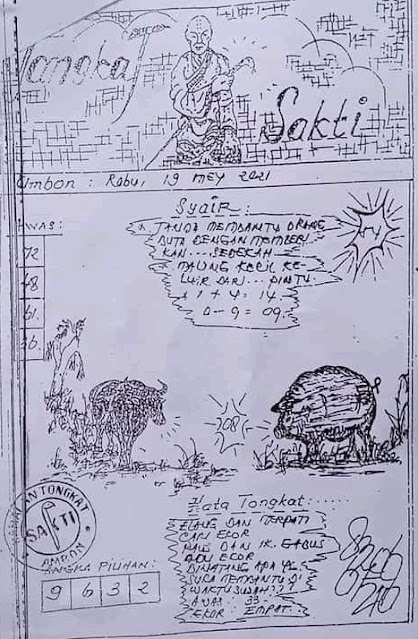 Tongkat Sakti
Ambon : Rabu, 19 MEY 2021
Syair :
JANDA MEMBANTU ORANG
BUTA DENGAN MEMBERI
KAN .... SEDEKAH
MALING KECIL KE-
LUAR DARI ... PINTU
1 + 4 = 14
0 - 9 = 09
AWAS :
72
48
61
208
Kata Tongkat : ......
ELANG DAN MERPATI
CARI EKOR
DAN IK. GABUS
ADU EKOR
BINATANG APA YG
SUKA MEMBANTU DI
WAKTU SUSAH ? ?
AWAS : 33
EKOR : EMPAT
TONGKAT
SAKTI
AMBON
ANGKA PILIHAN :
9 6 3 2